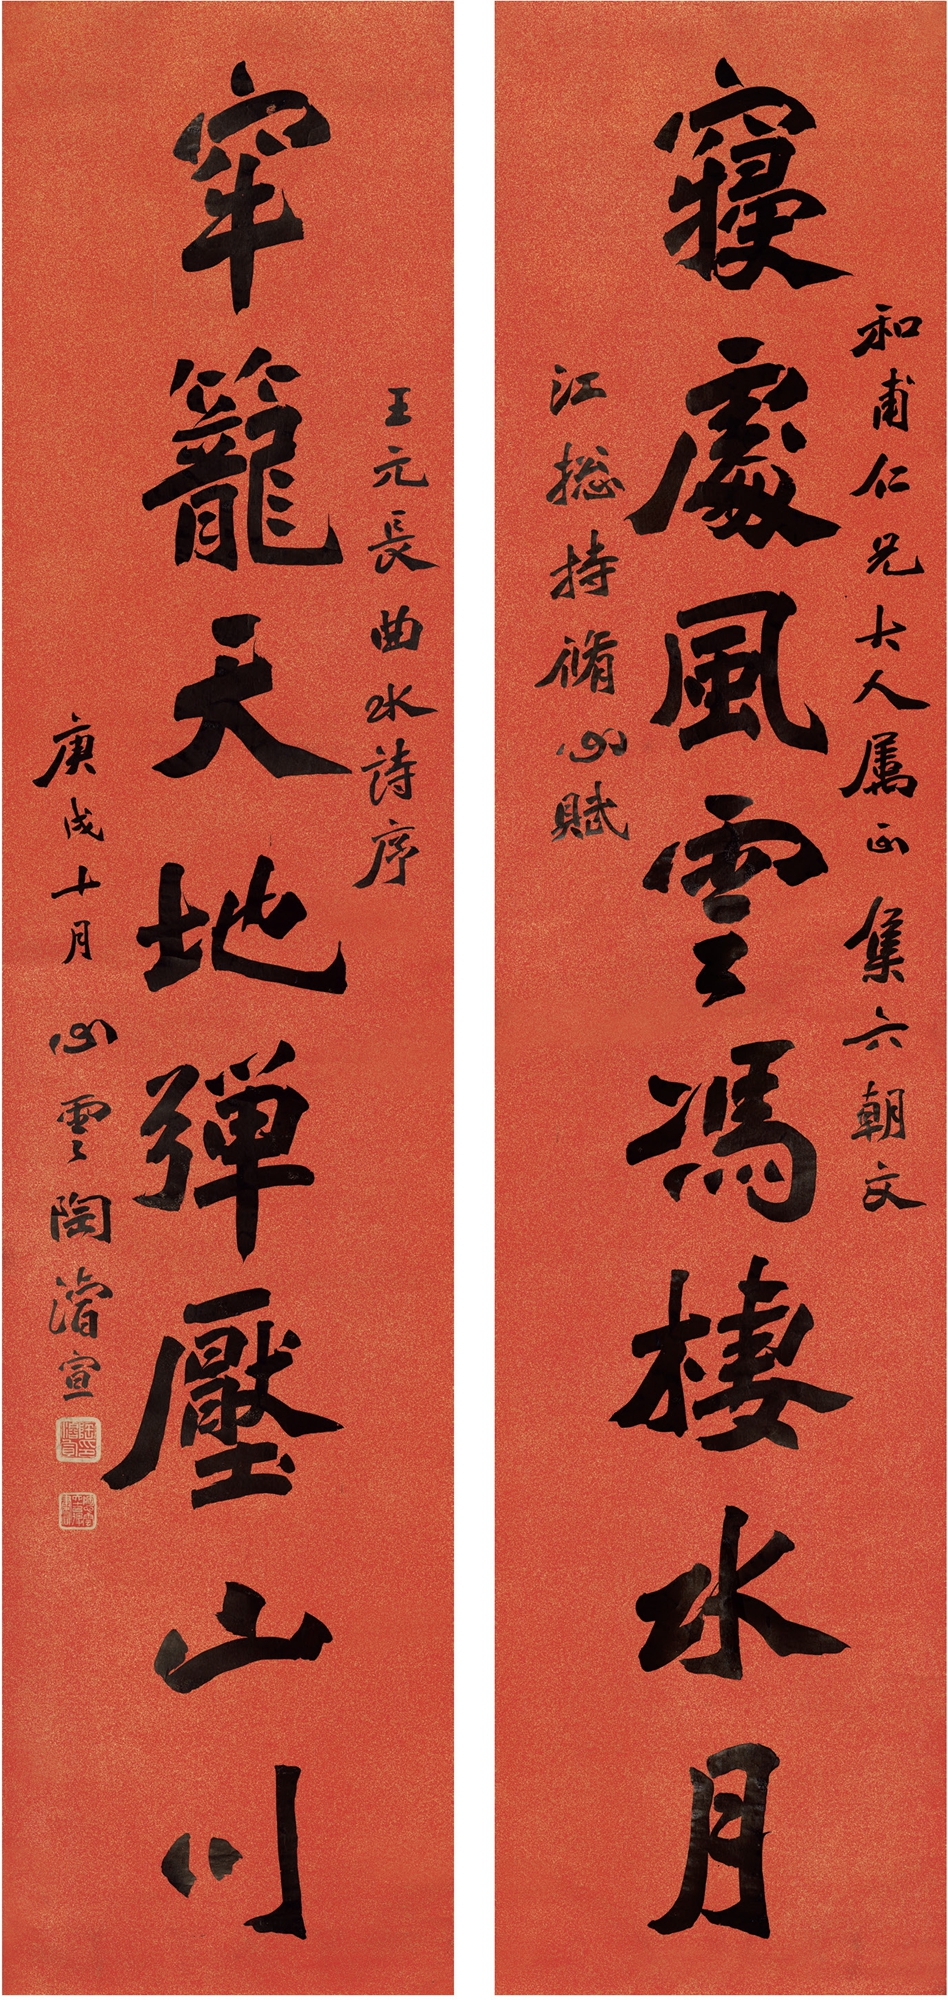 和甫仁兄大人属正集六朝文
寢處風雲馮棲水月
江揔持脩心賦
王元長曲水詩序
牢籠天地彈壓山川
庚戌十月心雲陶濬宣